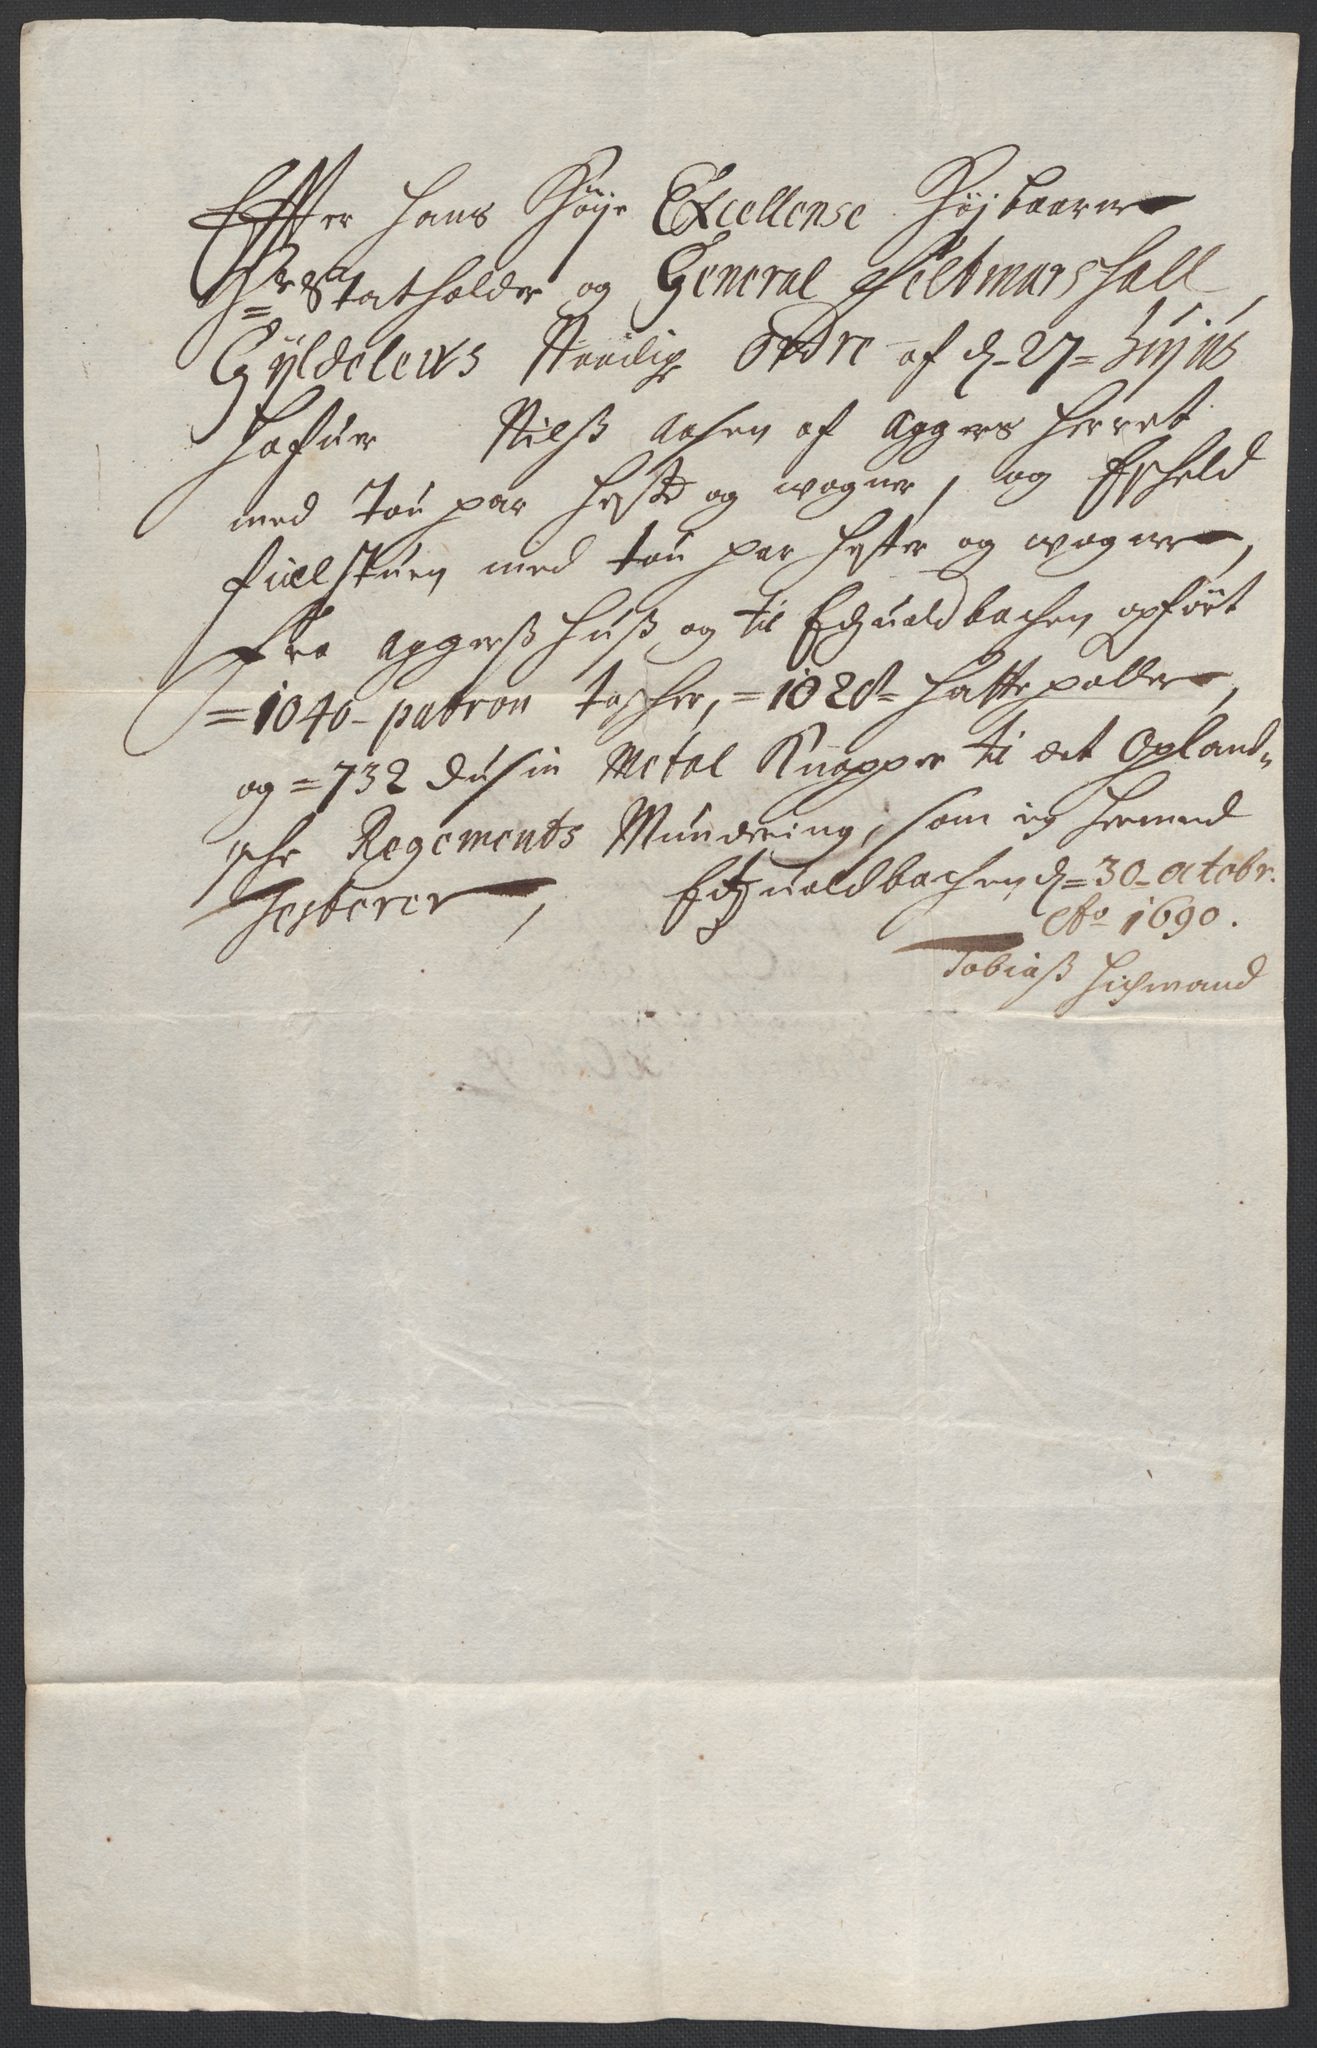 Effter hans Høye Excellense Høybaarne
Hr Statholder og General Feltmarshall
Gyldelews Naadige Ordre af d. 27 = hujus
hafuer Nilß Aasen af Aggers herret
med tou par heste og wogner, og Eskeld
fuelstuen med tou par hester og wogner,
fra Aggerß huß og til Edzualdbachen opført
= 1040 - patron tasker, = 1028 = hatte poller,
og = 732 dusin Metal Knapper til det Opland=
sche Regements Mundering, som ieg hermed
Testerer, Edzualdbachen d = 30 - octobr.
Ao 1690.
Tobiaß